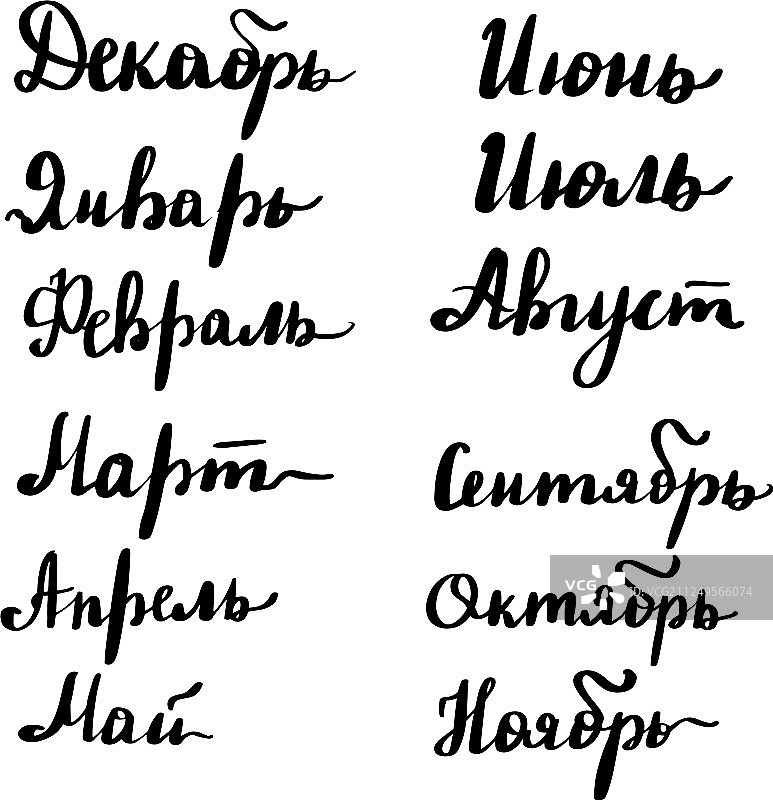 Декабрь
Январь
Февраль
Март
Апрель
Май
Июнь
Июль
Август
Сентябрь
Октябрь
Ноябрь
VCG ID:VCG211249566074